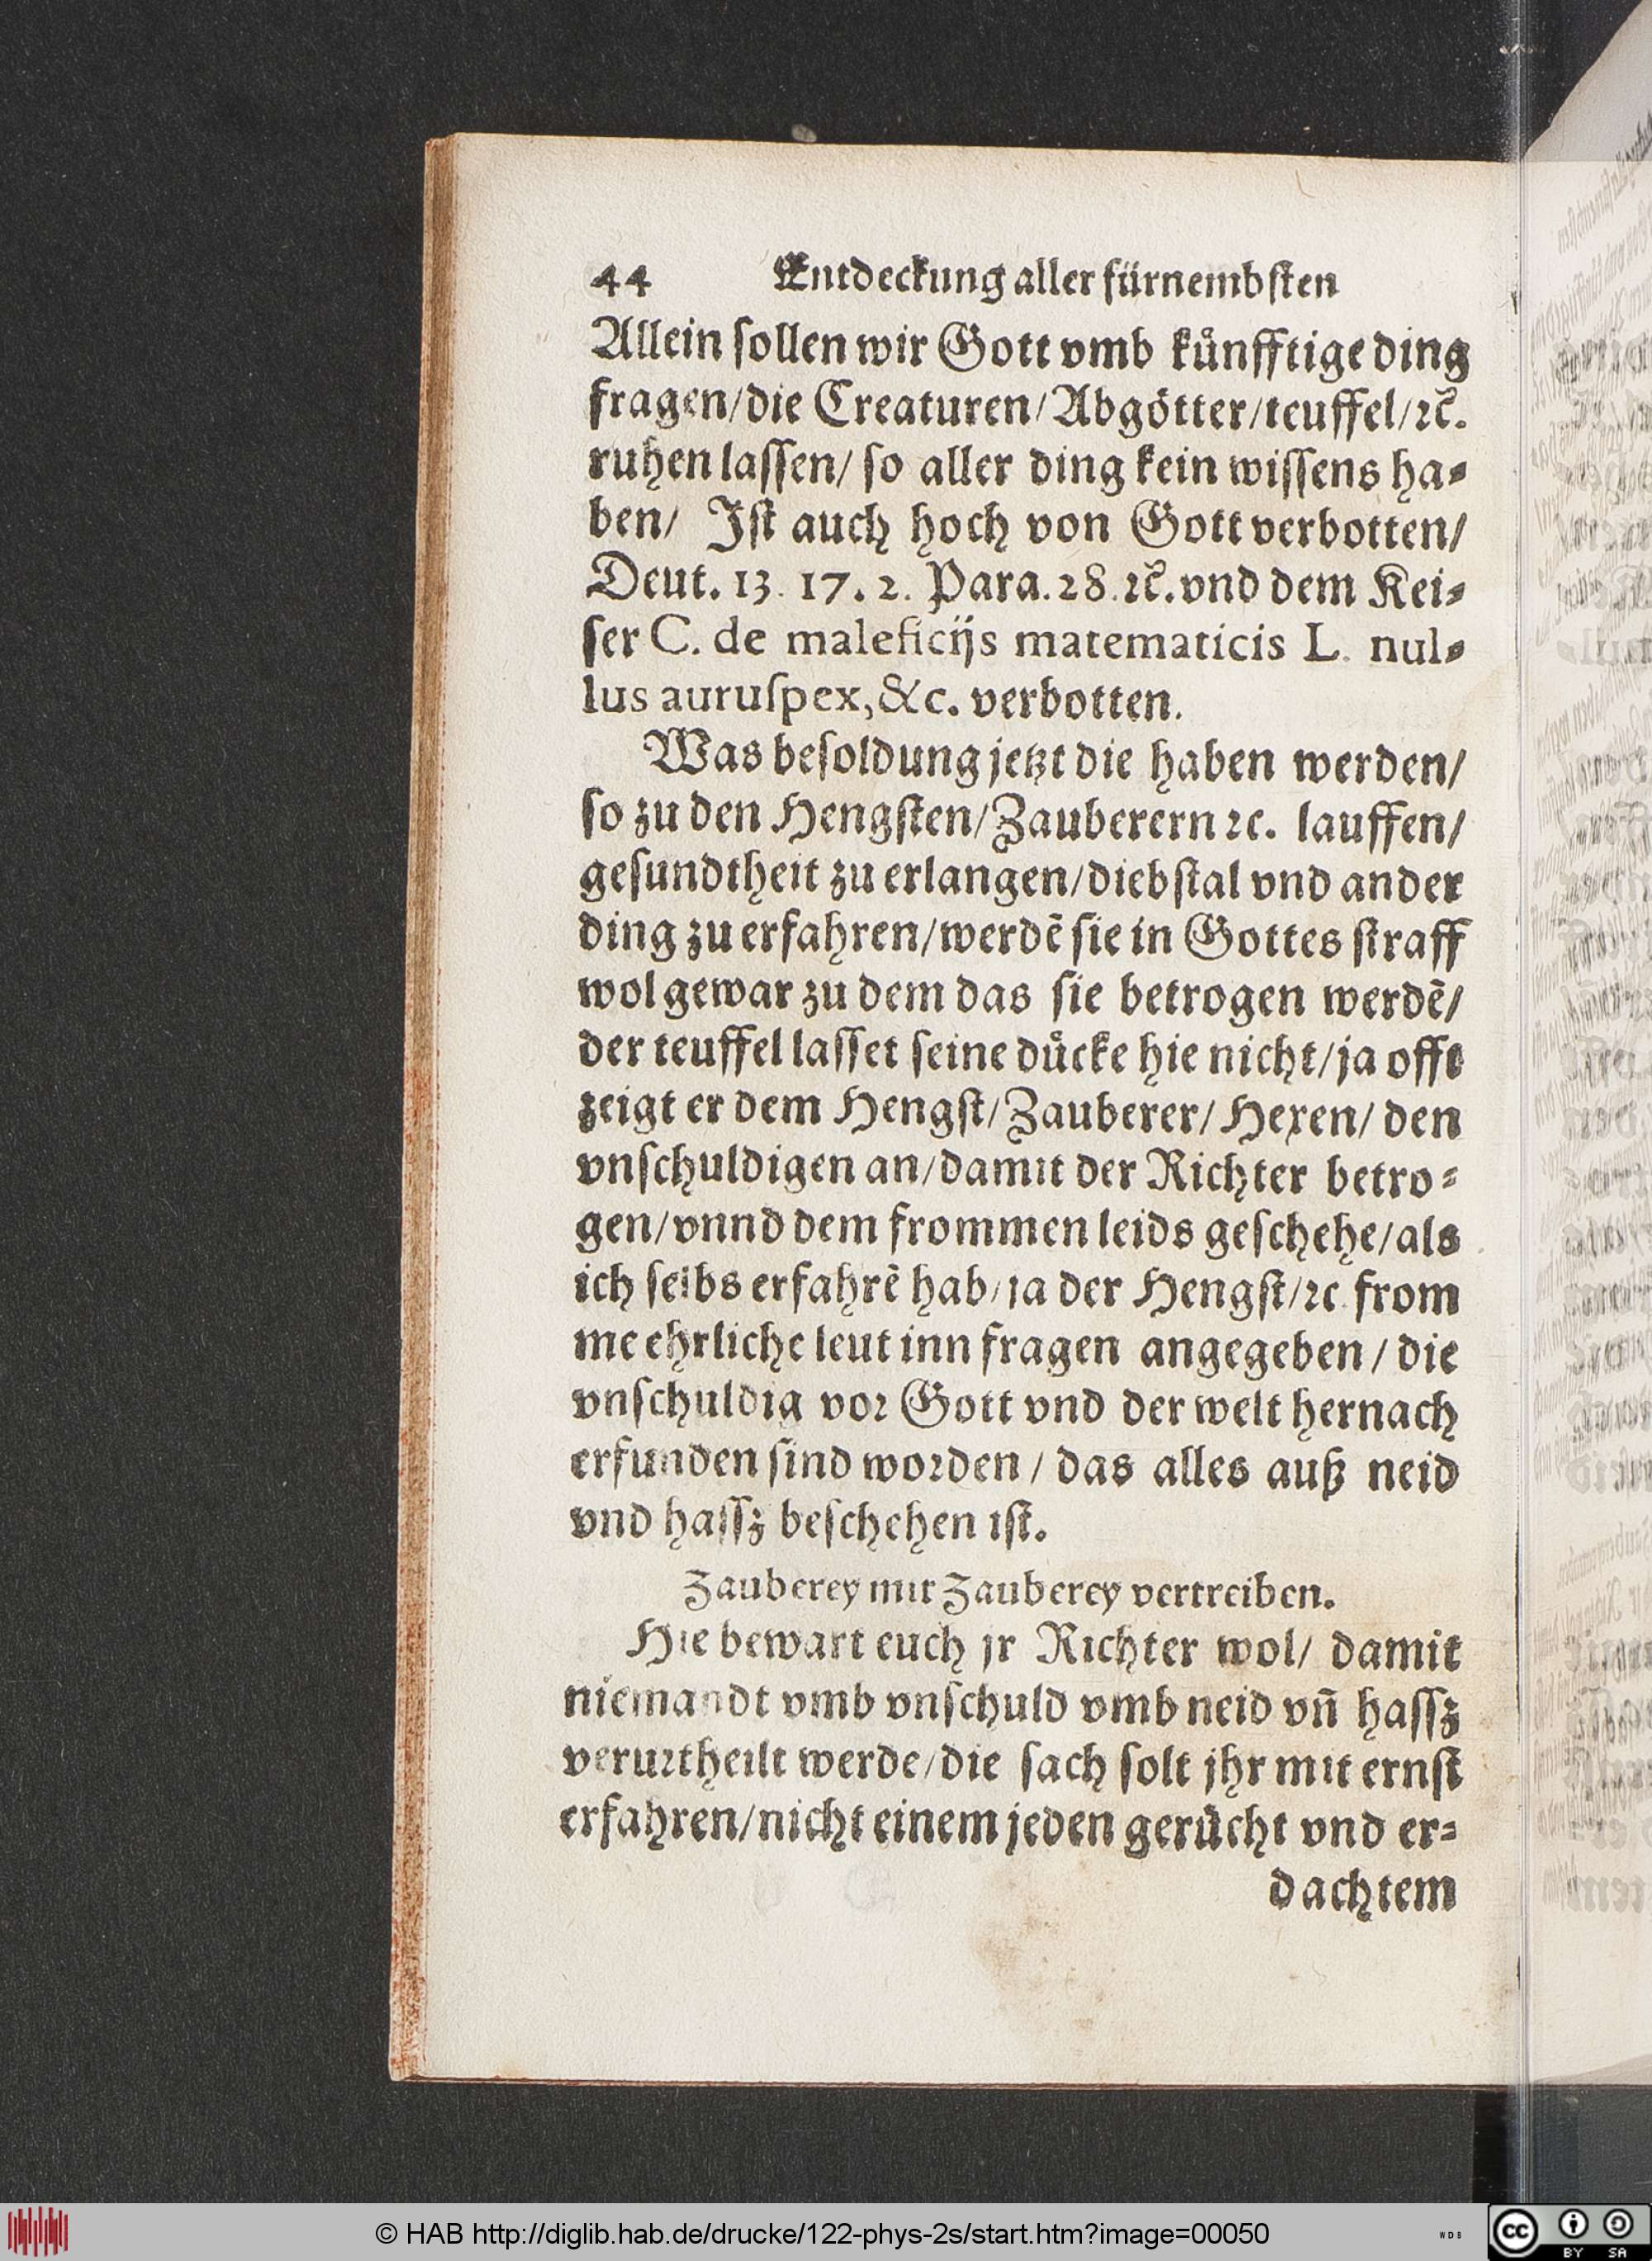 44 Entdeckung aller fürnembsten
Allein sollen wir Gott vmb kůnfftige ding
fragen/die Creaturen/Abgötter/teuffel/ꝛc̃.
ruhen lassen/ so aller ding kein wissens ha⸗
ben/ Ist auch hoch von Gott verbotten/
Deut. 13. 17. 2. Para. 28. ꝛc̃. vnd dem Kei⸗
ser C. de maleficijs matematicis L. nul⸗
lus auruſpex, &c. verbotten.
Was besoldung jetzt die haben werden/
so zu den Hengsten/Zauberern ꝛc. lauffen/
gesundtheit zu erlangen/diebstal vnd ander
ding zu erfahren/werdẽ sie in Gottes straff
wol gewar zu dem das sie betrogen werdẽ/
der teuffel lasset seine důcke hie nicht/ja offt
zeigt er dem Hengst/Zauberer/ Hexen/ den
vnschuldigen an/damit der Richter betro⸗
gen/vnnd dem frommen leids geschehe/als
ich selbs erfahrẽ hab/ja der Hengst/ꝛc. from
me ehrliche leut inn fragen angegeben / die
vnschuldig vor Gott vnd der welt hernach
erfunden sind worden / das alles auß neid
vnd hassz beschehen ist.
Zauberey mit Zauberey vertreiben.
Hie bewart euch jr Richter wol/ damit
niemandt vmb vnschuld vmb neid vñ hassz
verurtheilt werde/die sach solt jhr mit ernst
erfahren/nicht einem jeden gerůcht vnd er⸗
dachtem
© HAB http://diglib.hab.de/drucke/122-phys-2s/start.htm?image=00050
WDB
cc BY SA